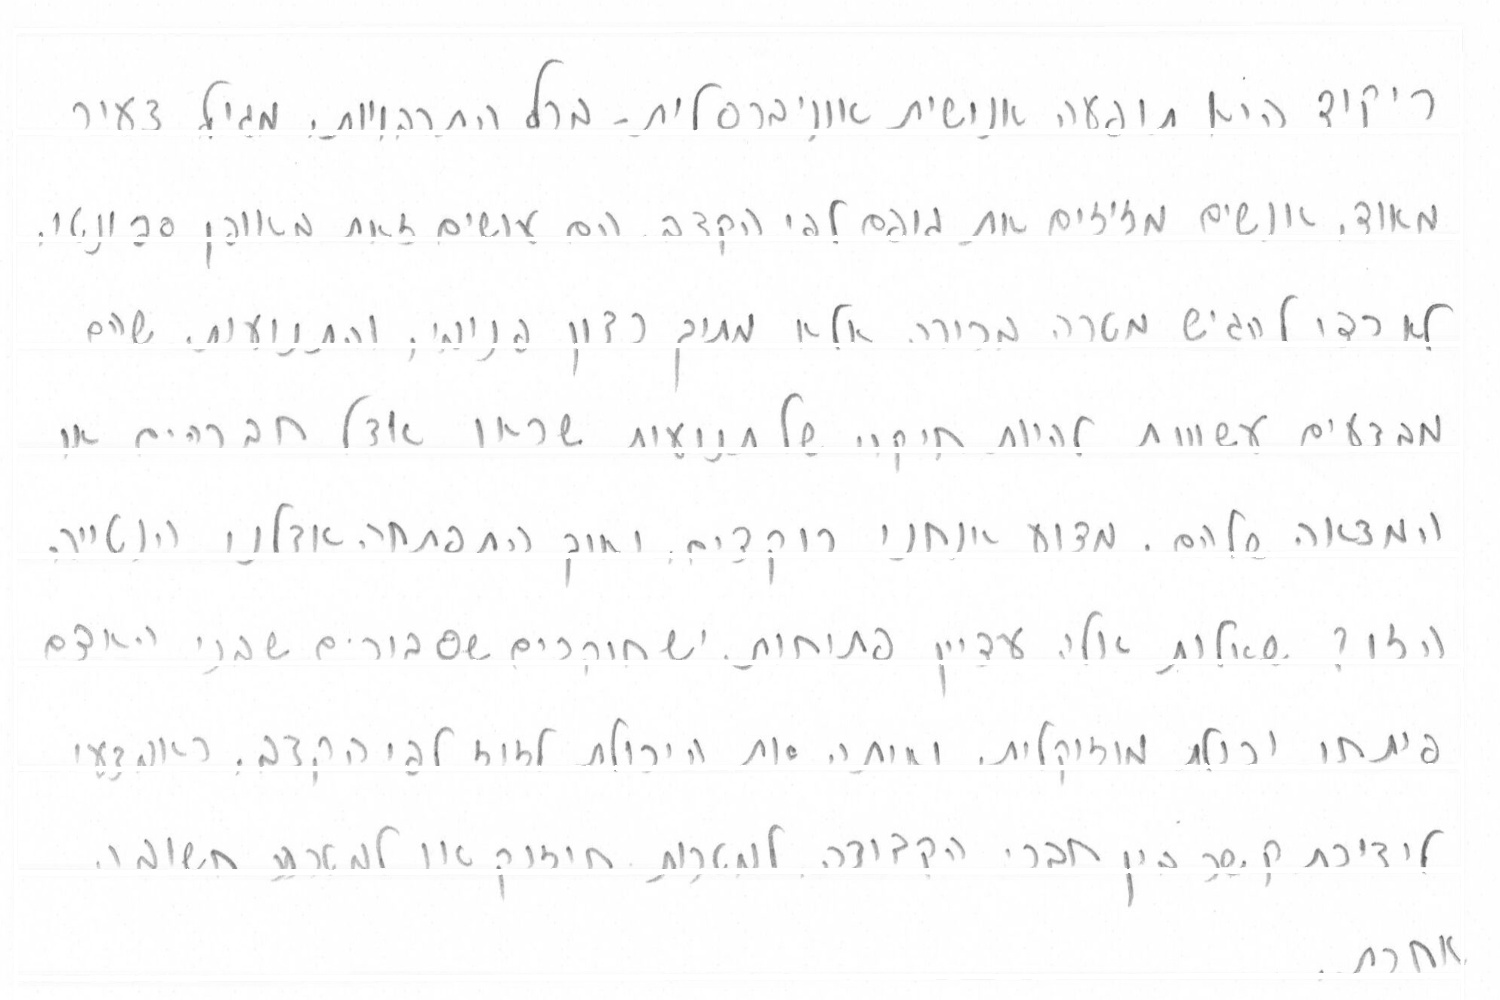 ריקוד הוא תופעה אנושית אוניברסלית - בכל התרבויות, מגיל צעיר
מאוד, אנשים מזיזים את גופם לפי הקצב. הם עושים זאת באופן ספונטני,
לא כדי להגיש מטרה ברורה אלא מתוך רצון פנימי, והתנועות שהם
מבצעים עשויות להיות חיקוי של תנועות שראו אצל חבריהם או
המצאה שלהם. מדוע אנחנו רוקדים, ואיך התפתחה אצלנו הנטייה
הזו? שאלות אלו עדיין פתוחות. יש חוקרים שסבורים שבני האדם
פיתחו יכולת מוזיקלית, ואיתה את היכולת לזוז לפי הקצב, כאמצעי
ליצירת קשר בין חברי הקבוצה, למטרות חיזור או למטרה חשובה
אחרת.